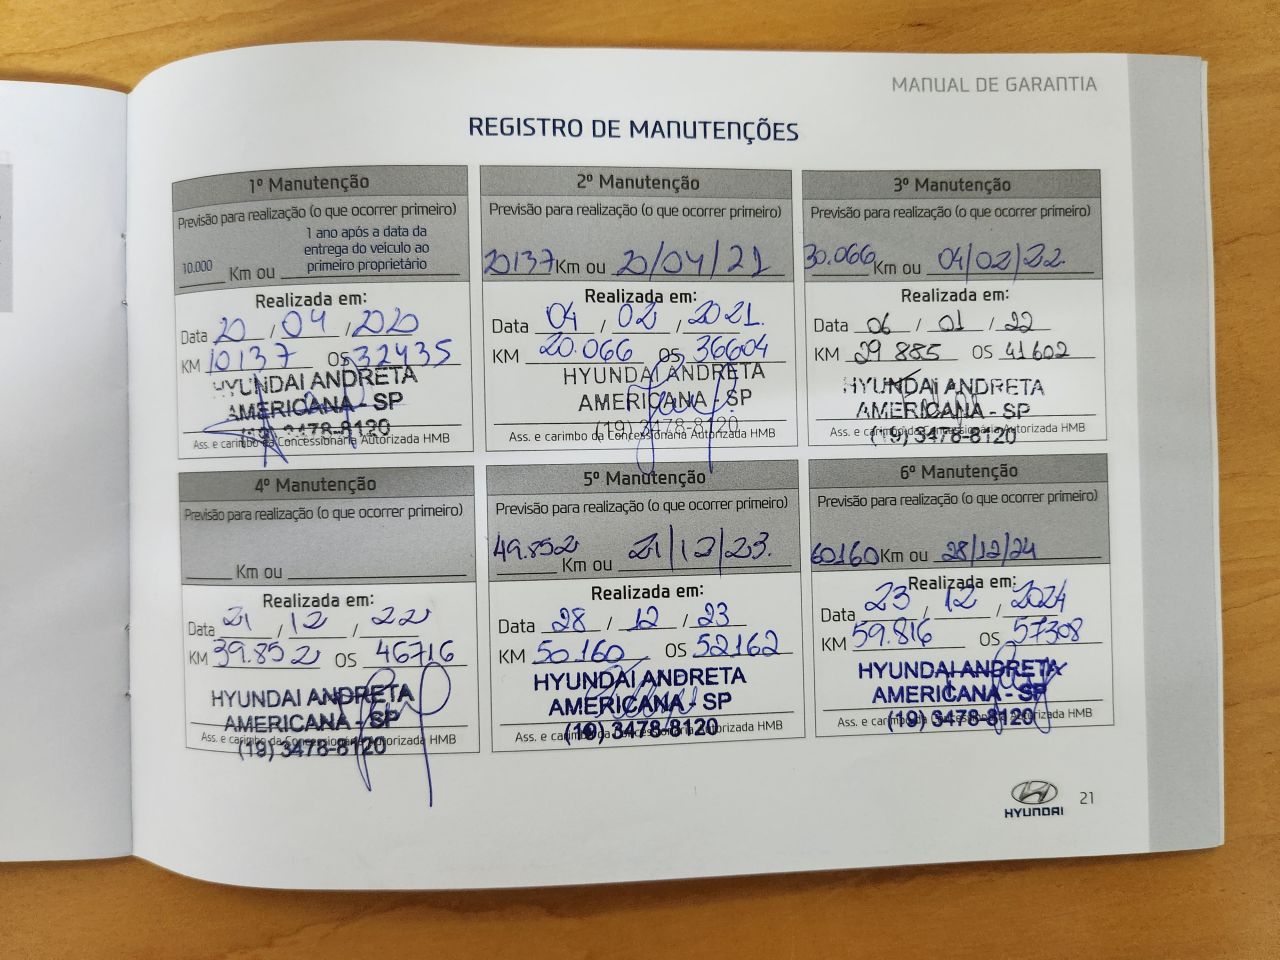 MANUAL DE GARANTIA
REGISTRO DE MANUTENÇÕES
1º Manutenção
Previsão para realização (o que ocorrer primeiro)
1 ano após a data da
entrega do veículo ao
10.000 Km ou primeiro proprietário
Realizada em:
Data 20 / 04 / 2020
KM 10137 OS 32435
HYUNDAI ANDRETA
AMERICANA - SP
(19) 3478-8120
Ass. e carimbo da Concessionária Autorizada HMB
2º Manutenção
Previsão para realização (o que ocorrer primeiro)
20137 Km ou 20/04/21
Realizada em:
Data 04 / 02 / 2021.
KM 20.066 OS 36604
HYUNDAI ANDRETA
AMERICANA - SP
(19) 3478-8120
Ass. e carimbo da Concessionária Autorizada HMB
3º Manutenção
Previsão para realização (o que ocorrer primeiro)
30.066 Km ou 04/02/22.
Realizada em:
Data 06 / 01 / 22
KM 29 885 OS 41602
HYUNDAI ANDRETA
AMERICANA - SP
(19) 3478-8120
Ass. e carimbo da Concessionária Autorizada HMB
4º Manutenção
Previsão para realização (o que ocorrer primeiro)
Km ou
Realizada em:
Data 21 / 12 / 22
KM 39.852 OS 46716
HYUNDAI ANDRETA
AMERICANA - SP
Ass. e carimbo da Concessionária Autorizada HMB
(19) 3478-8120
5º Manutenção
Previsão para realização (o que ocorrer primeiro)
49.852 Km ou 21/12/23.
Realizada em:
Data 28 / 12 / 23
KM 50.160 OS 52162
HYUNDAI ANDRETA
AMERICANA - SP
(19) 3478-8120
Ass. e carimbo da Concessionária Autorizada HMB
6º Manutenção
Previsão para realização (o que ocorrer primeiro)
60160 Km ou 28/12/24
Realizada em:
Data 23 / 12 / 2024
KM 59.816 OS 57308
HYUNDAI ANDRETA
AMERICANA - SP
(19) 3478-8120
Ass. e carimbo da Concessionária Autorizada HMB
HYUNDAI 21